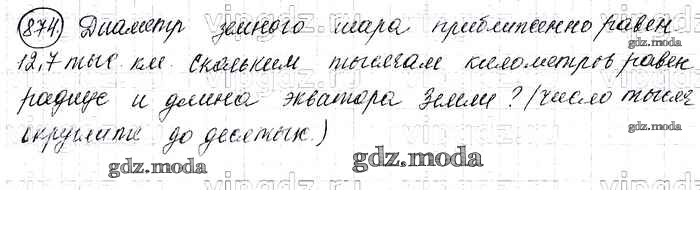 874. Диаметр земного шара приближенно равен
12,7 тыс. км. Скольким тысячам километров равен
радиус и длина экватора Земли? (Число тысяч
округлите до десятых.)
gdz.moda
gdz.moda
gdz.moda
gdz.moda